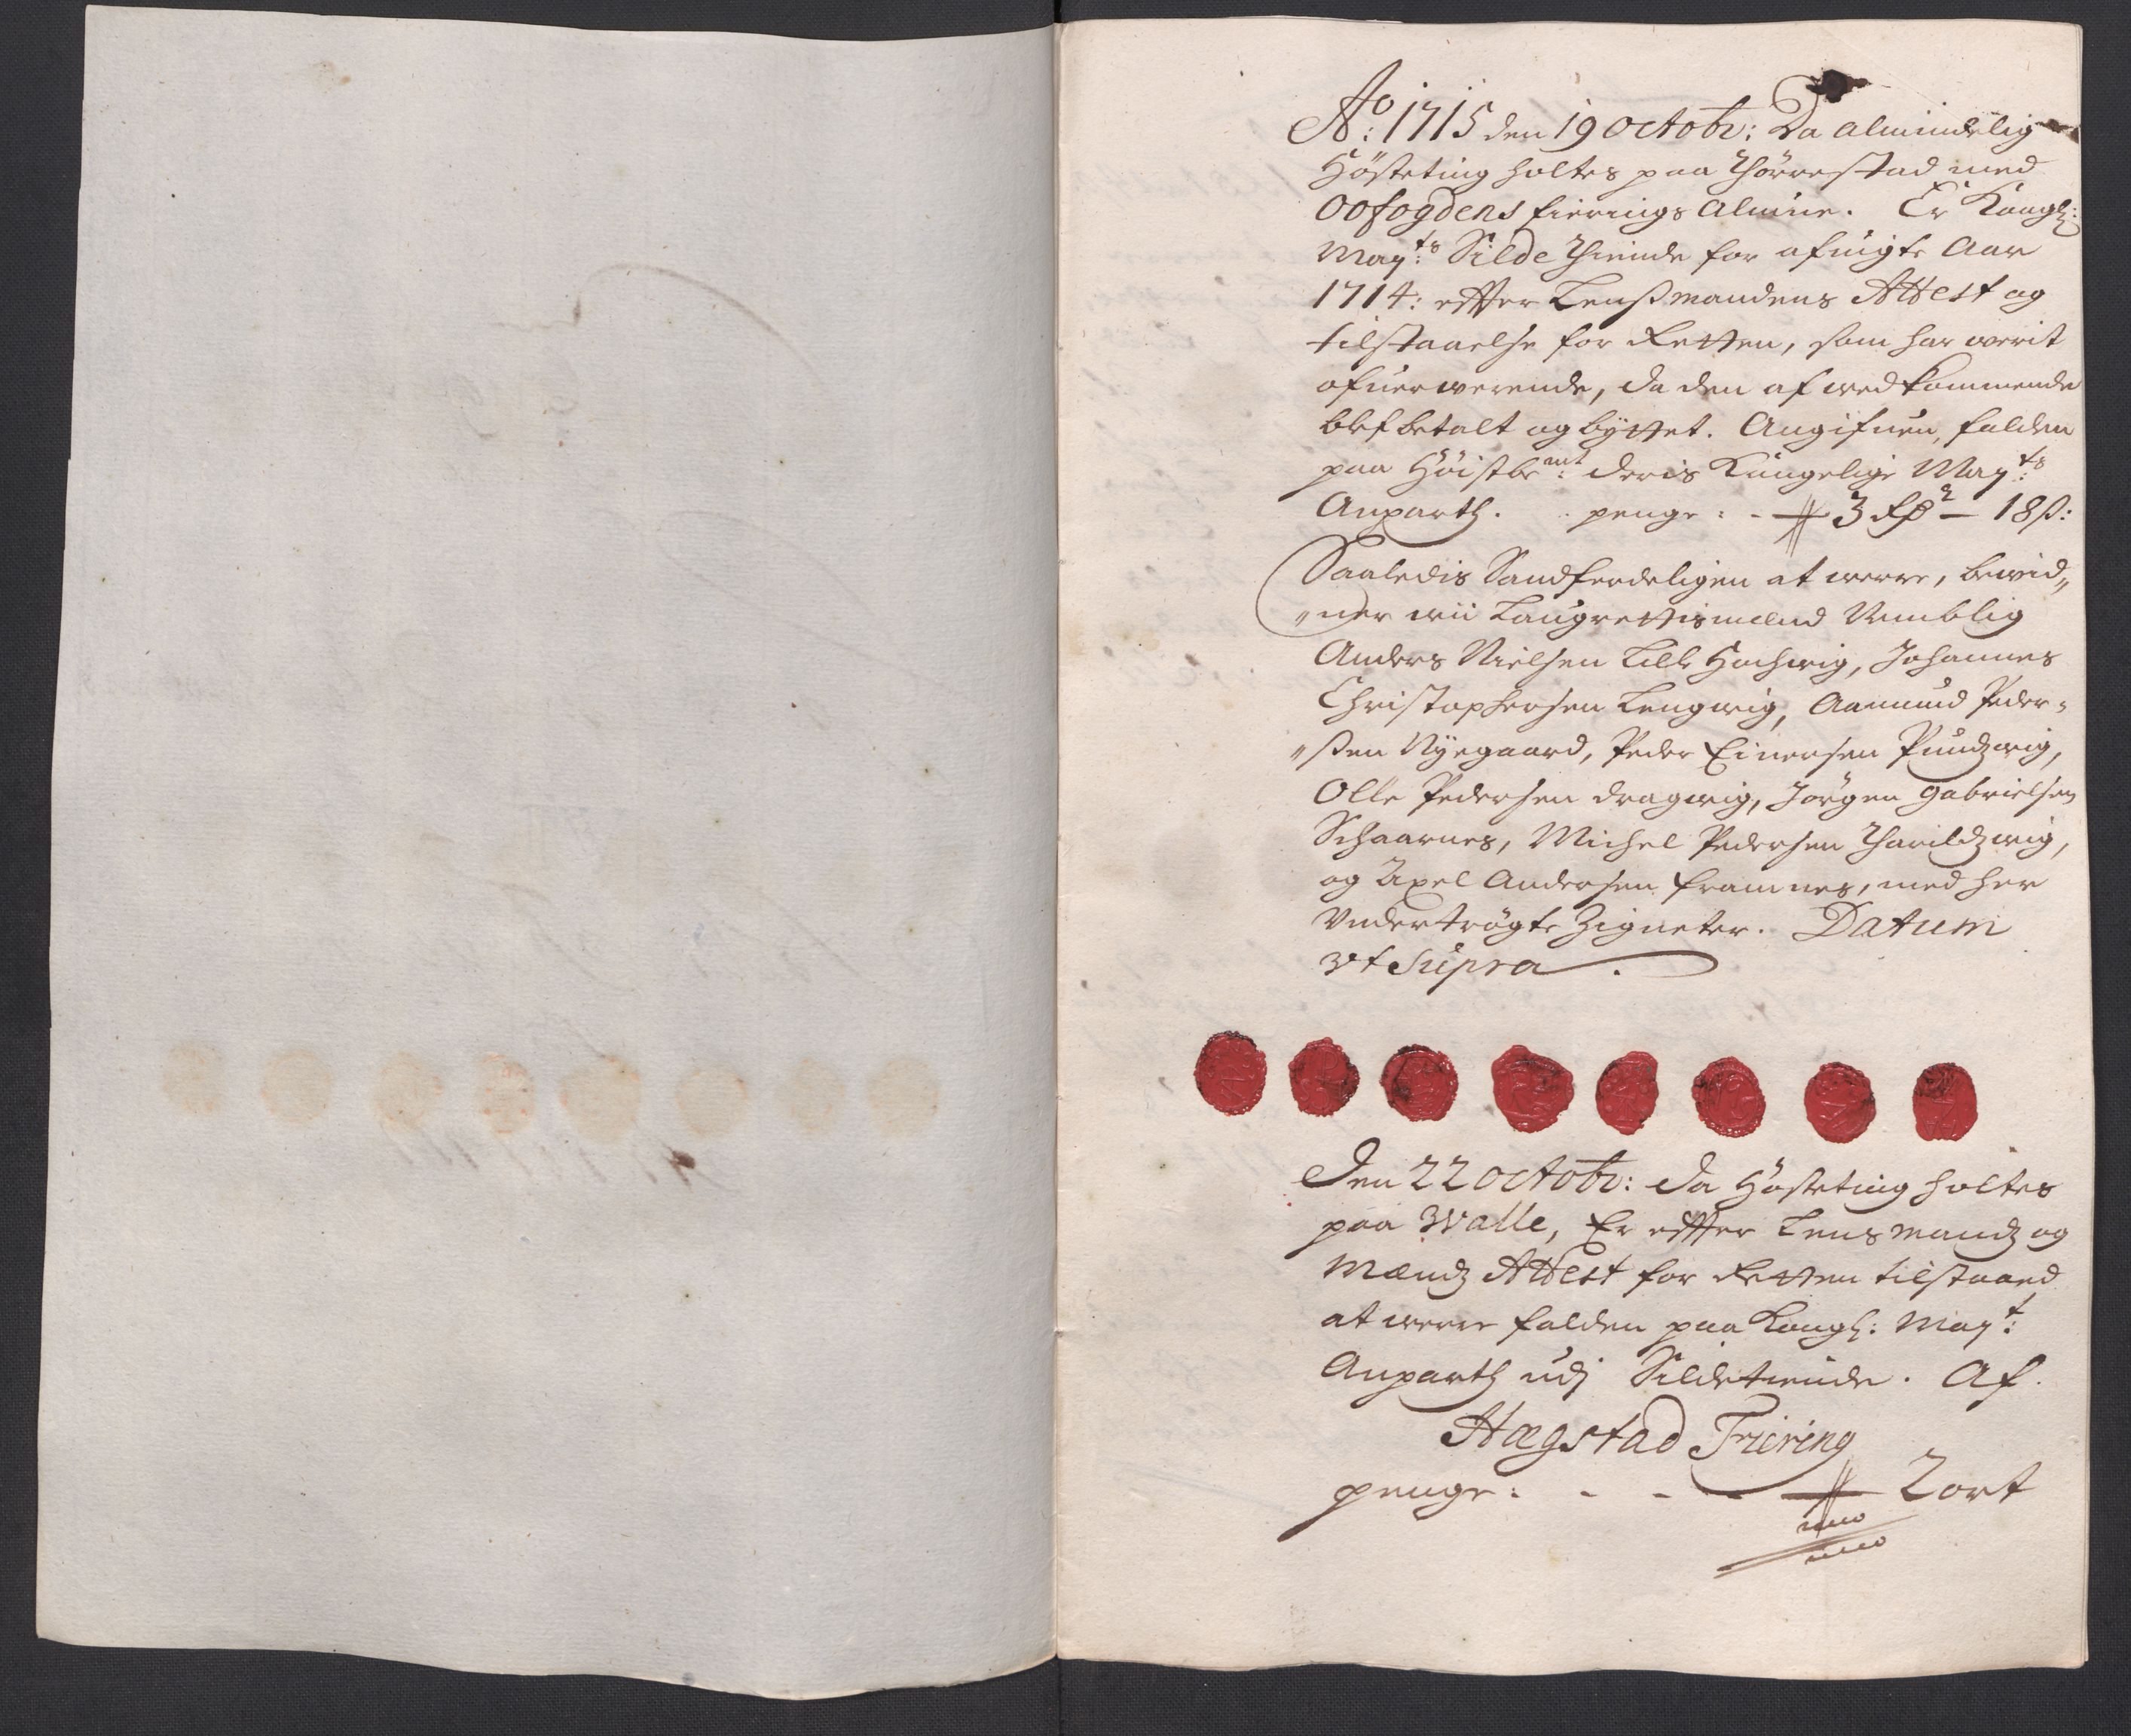 Ao: 1715 den 19 Octobr: Da Almindelig
Hösteting holtes paa Thörrestad med
Oofogdens fierings Almue. Er Kongl:
Mayts: Silde Thiende for afvigte Aar
1714: effter Lenßmandens Attest og
tilstaaelse for Retten, som har werit
ofuerwerende, da den af wedkommende
blef betalt og byttet. Angifuen, falden
paa Höistbemt: Deris Kongelige Mayts:
Anparth. penge: - 3 Rdr - 18 ß:
Saaledis Sandferdeligen at werre, bewid„
„ner wii Laugrettismend Nemblig
Anders Nielsen Lille Hochwig, Johannes
Christophersen Lengwig, Aamund Peder„
„sen Nyegaard, Peder Einersen Pundzwig,
Olle Pedersen Dragwig, Jörgen Gabrielsen
Schaarnes, Michel Pedersen Tharildzwig,
og Axel Andersen Framnes, med her
Undertrögte Zigneter. Datum
Vt Supra.
Den 22 Octobr: Da Hösteting holtes
paa Walle, Er effter Lensmandz og
Mændz Attest for Retten tilstaaed
at werre falden paa Kongl: Mayt:
Anparth udj Sildetiende. Af.
Hægstad Friring
penge: - - - 2 ort